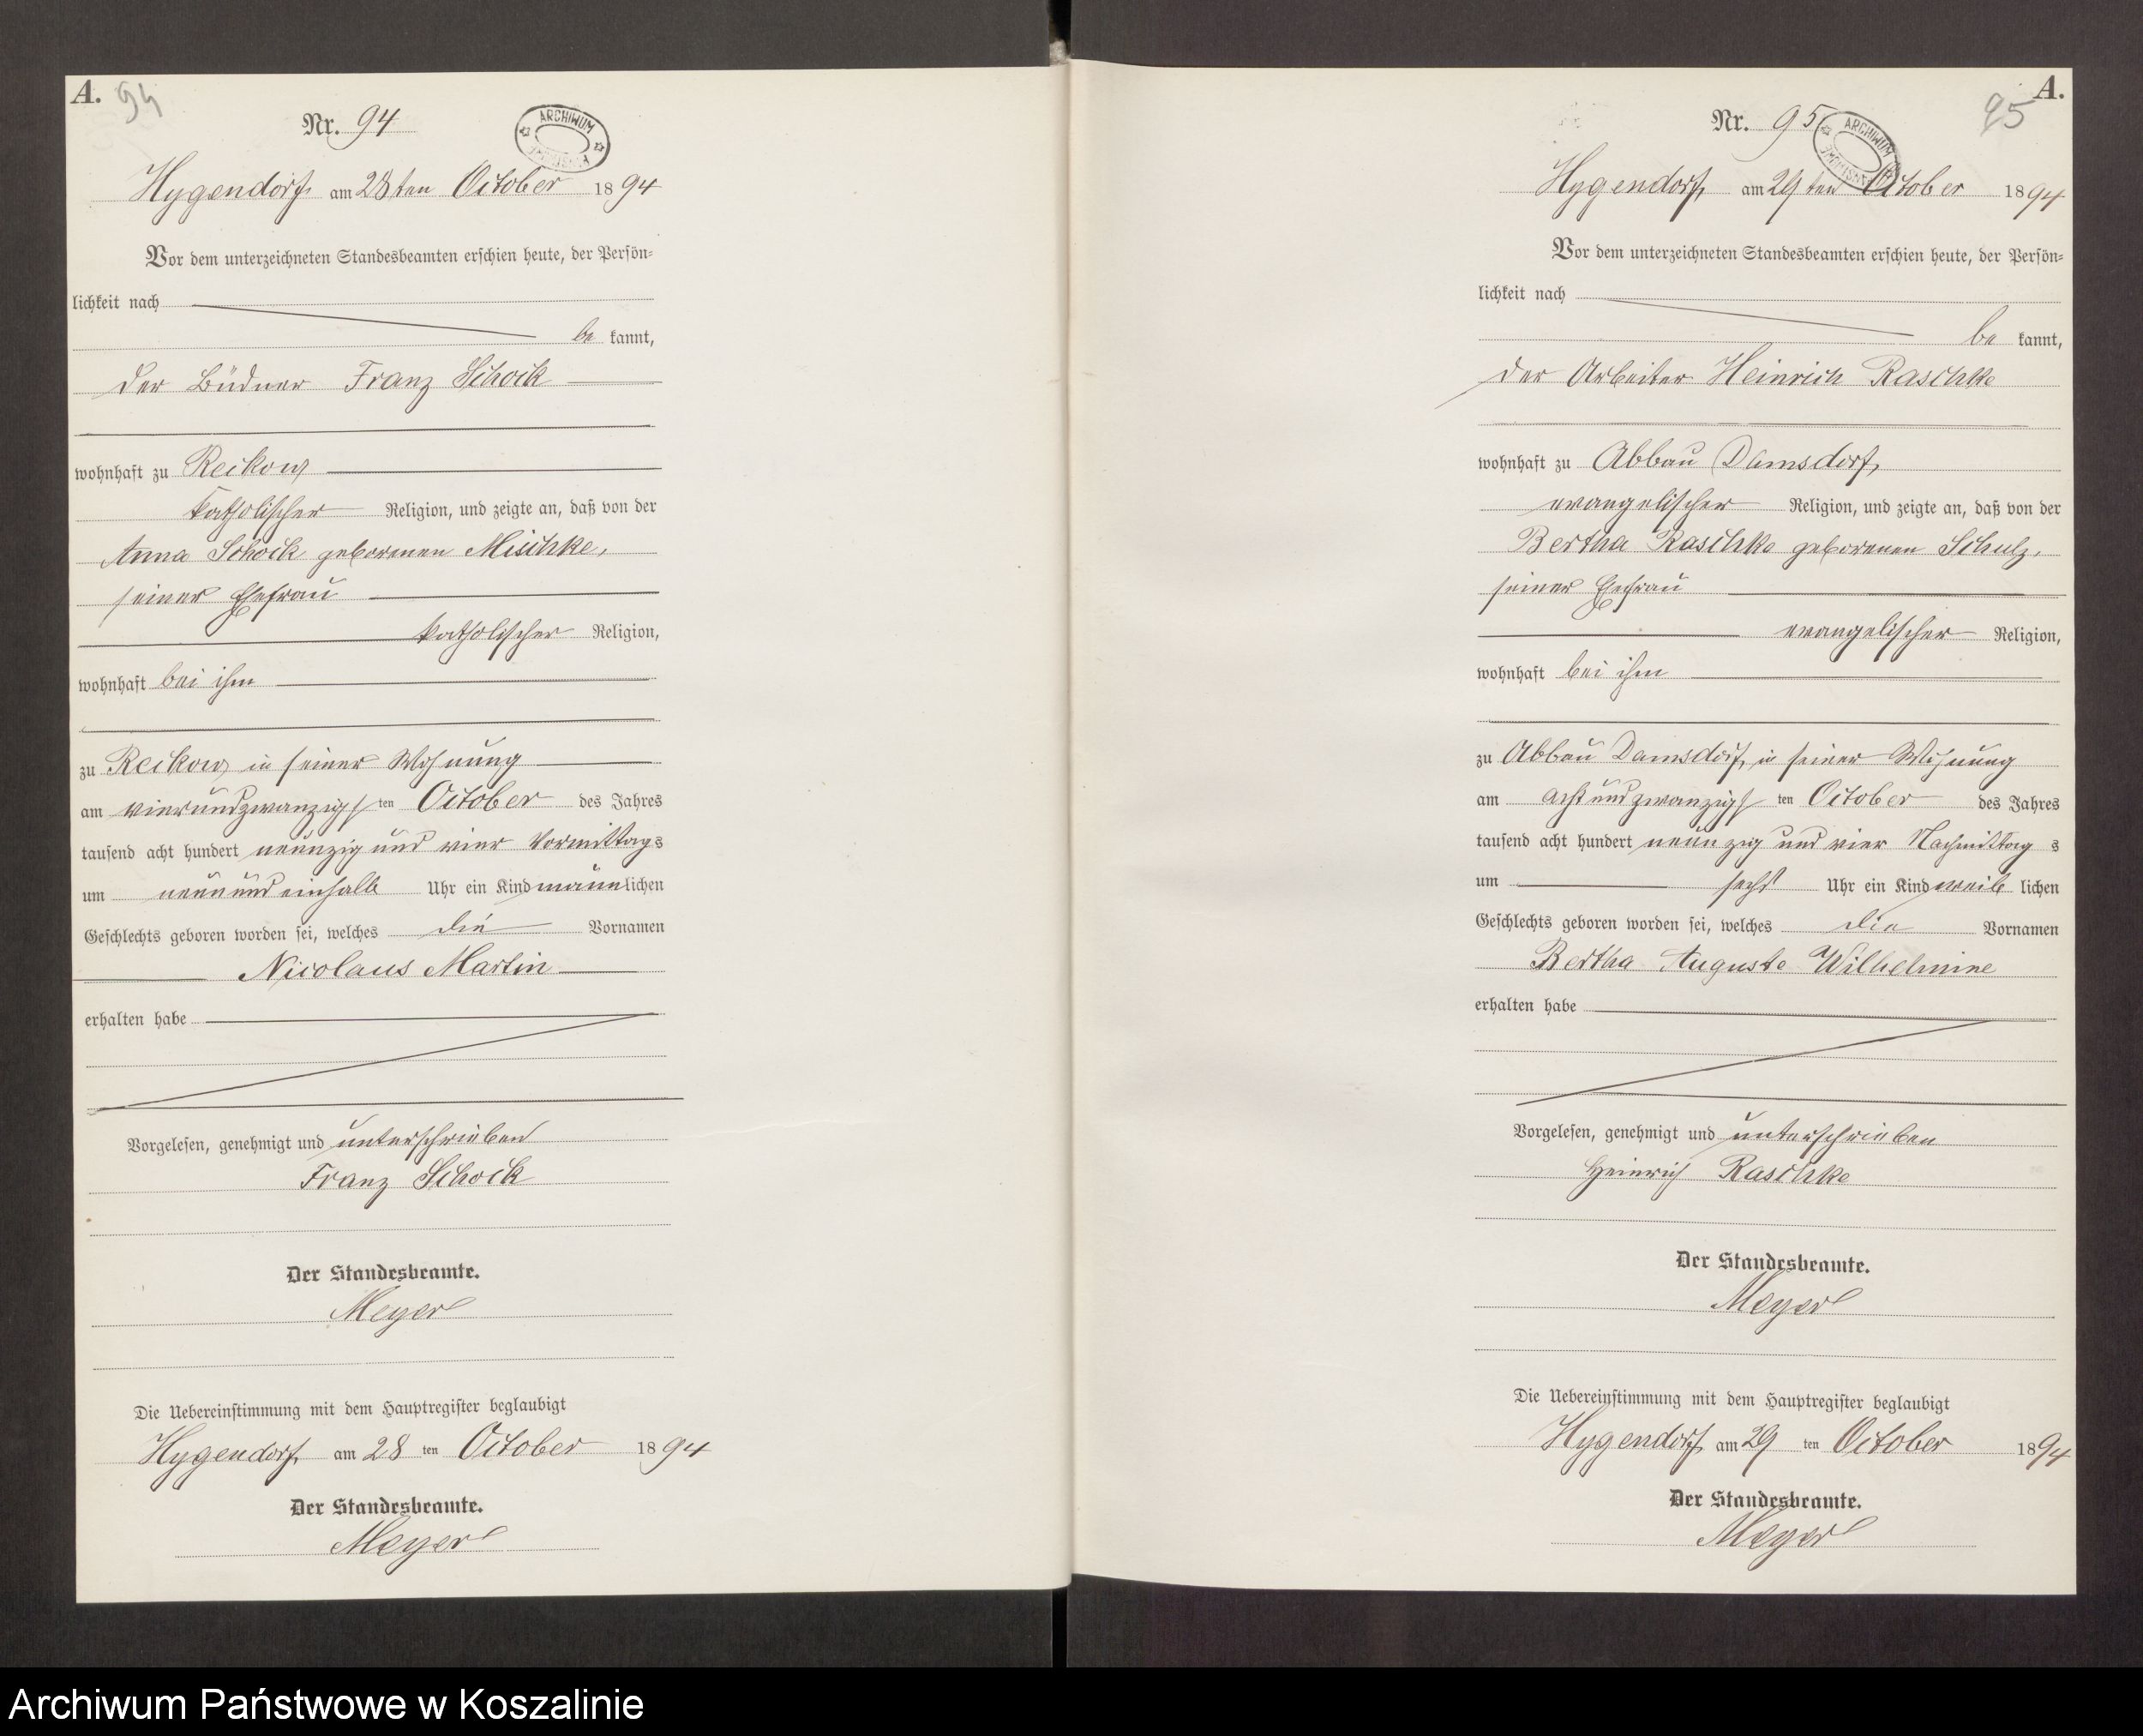 A.
94
Nr. 94
ARCHIWUM
Hygendorf am 28ten October 1894
Vor dem unterzeichneten Standesbeamten erschien heute, der Persön-
lichkeit nach
be kannt,
der Büdner Franz Schock
wohnhaft zu Reckow
katholischer Religion, und zeigte an, daß von der
Anna Schock geborenen Mischke,
seiner Ehefrau
katholischer Religion,
wohnhaft bei ihm
zu Reckow in seiner Wohnung
am vierundzwanzigsten October des Jahres
tausend acht hundert neunzig und vier Vormittags
um neun und einhalb Uhr ein Kind männlichen
Geschlechts geboren worden sei, welches die Vornamen
Nicolaus Martin
erhalten habe
Vorgelesen, genehmigt und unterschrieben
Franz Schock
Der Standesbeamte.
Meyer
Die Uebereinstimmung mit dem Hauptregister beglaubigt
Hygendorf, am 28 ten October 1894
Der Standesbeamte.
Meyer
A.
95
Nr. 95
ARCHIWUM
Hygendorf, am 29 ten October 1894
Vor dem unterzeichneten Standesbeamten erschien heute, der Persön-
lichkeit nach
be kannt,
der Arbeiter Heinrich Raschke
wohnhaft zu Abbau Damsdorf,
evangelischer Religion, und zeigte an, daß von der
Bertha Raschke geborenen Schulz,
seiner Ehefrau
evangelischer Religion,
wohnhaft bei ihm
zu Abbau Damsdorf, in seiner Wohnung
am acht und zwanzigsten October des Jahres
tausend acht hundert neunzig und vier Nachmittags
um sechs Uhr ein Kind weiblichen
Geschlechts geboren worden sei, welches die Vornamen
Bertha Auguste Wilhelmine
erhalten habe
Vorgelesen, genehmigt und unterschrieben
Heinrich Raschke
Der Standesbeamte.
Meyer
Die Uebereinstimmung mit dem Hauptregister beglaubigt
Hygendorf, am 29 ten October 1894
Der Standesbeamte.
Meyer
Archiwum Państwowe w Koszalinie